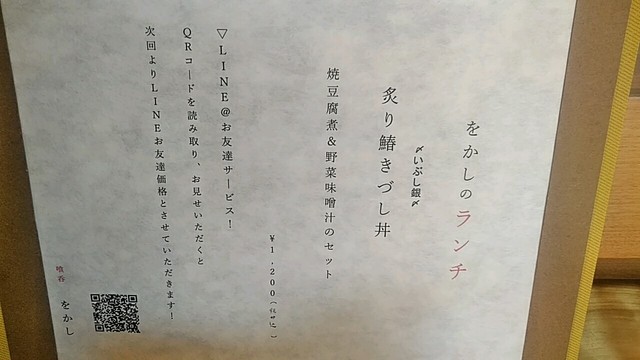 をかしのランチ
〆いぶし銀〆
炙り鰆きづし丼
焼豆腐煮&野菜味噌汁のセット
¥1.200(税込)
▽LINE@お友達サービス!
QRコードを読み取り、お見せいただくと
次回よりLINEお友達価格とさせていただきます!
喰呑 をかし